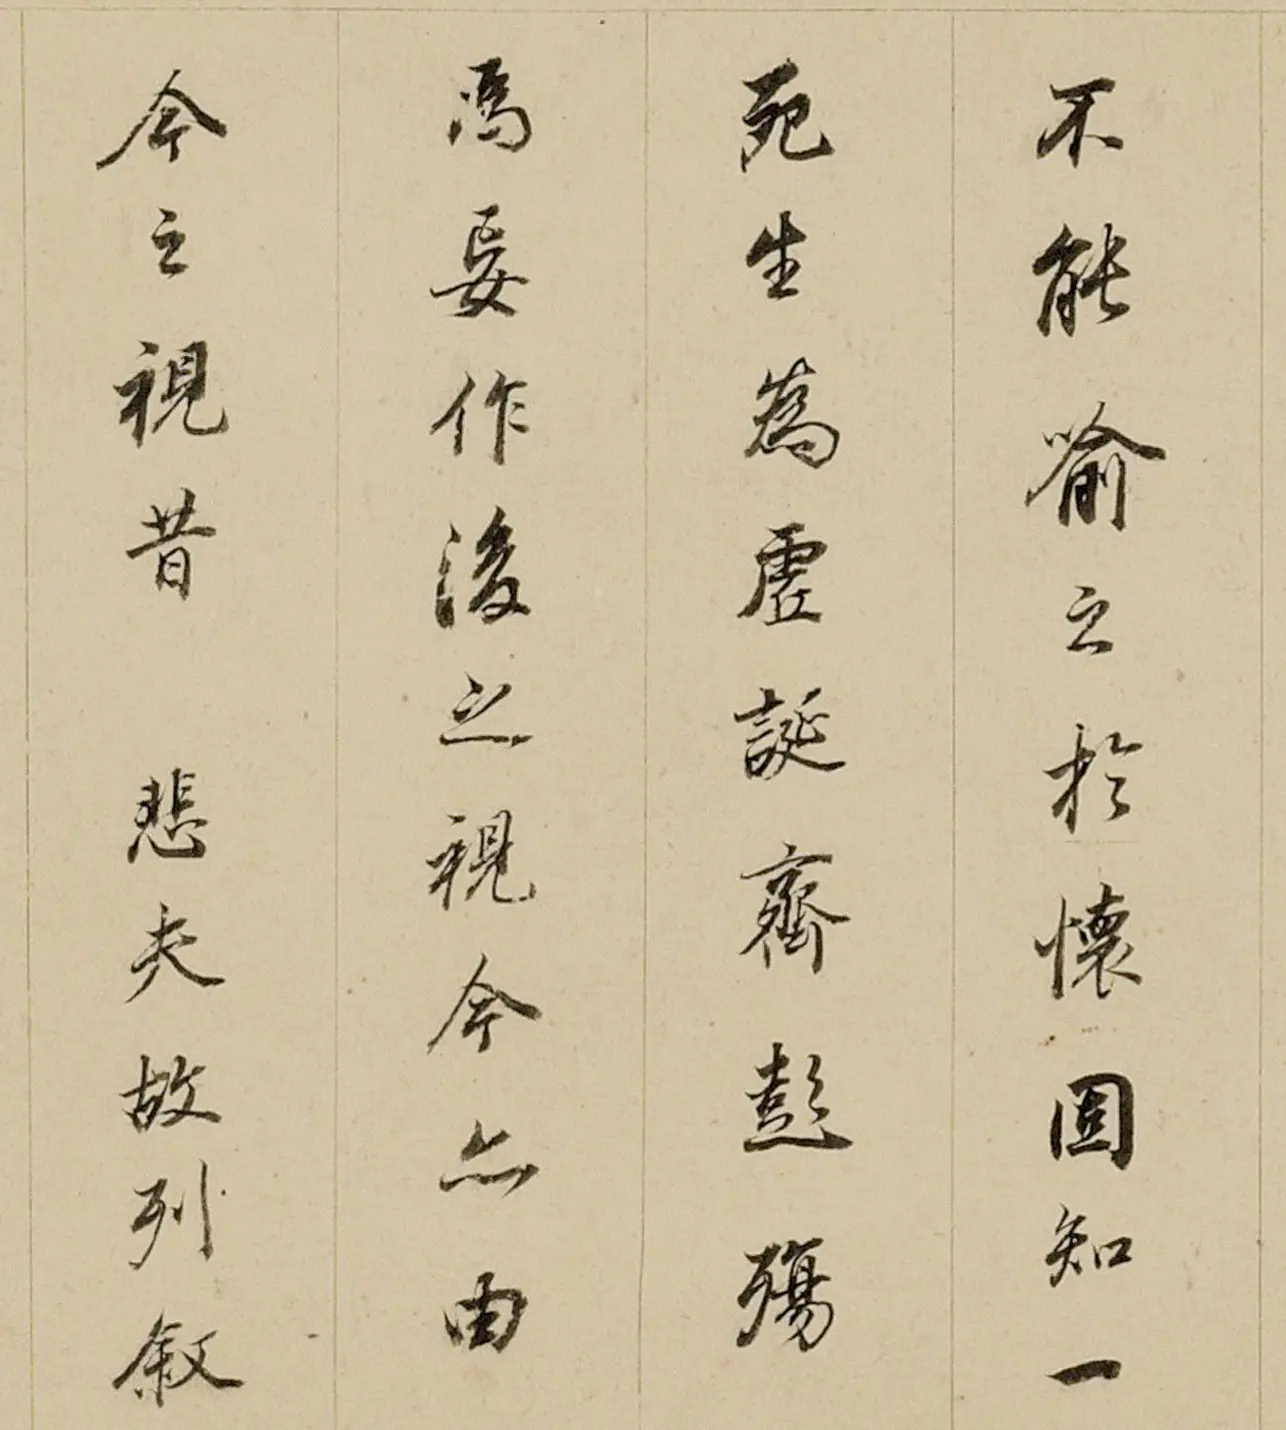 不能喻之於懷固知一
死生為虛誕齊彭殤
為妄作後之視今亦由
今之視昔悲夫故列敘